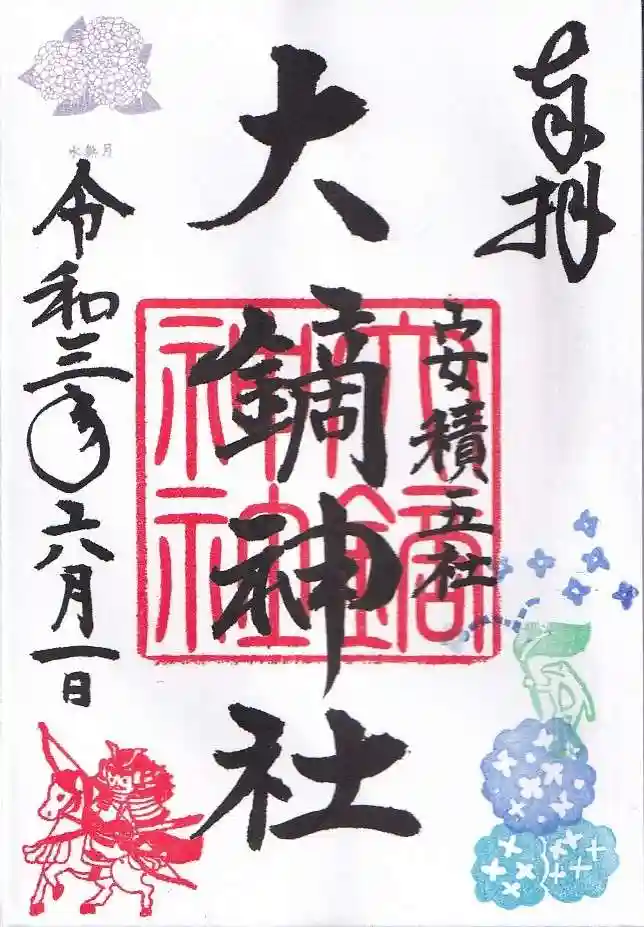 奉拝
安積五社
大鏑神社
大鏑神社
水無月
令和三年六月一日